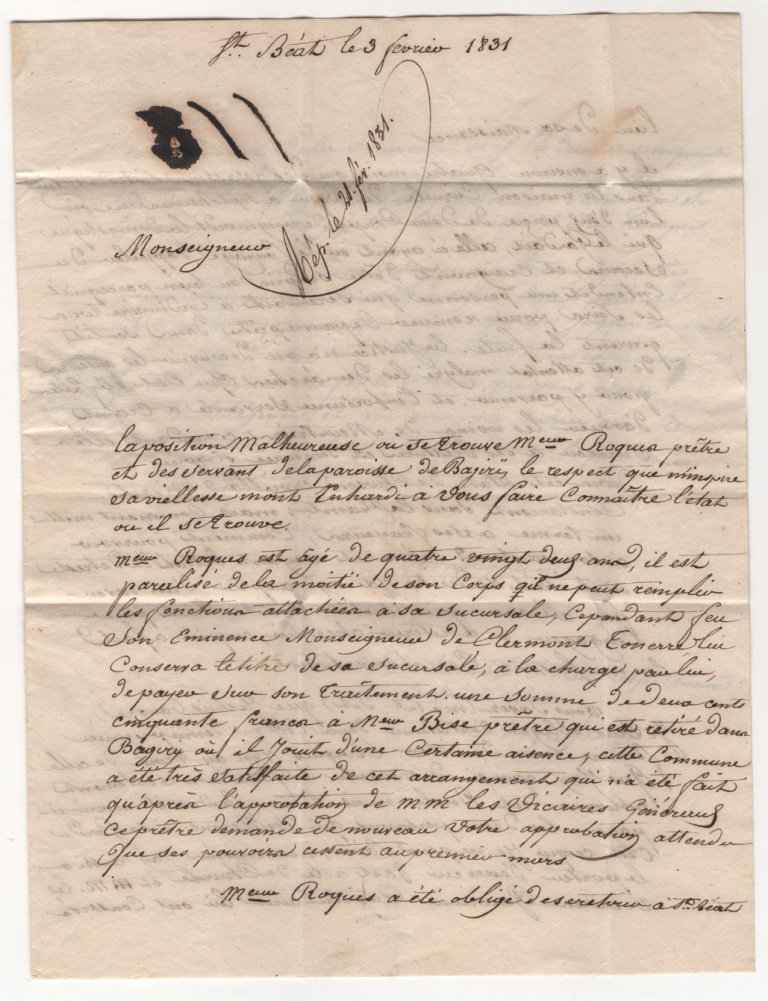 St. Béat le 3 fevrier 1831
Rép. le 21. fév. 1831.
Monseigneur
la position Malheureuse où se trouve Meur Roques prêtre
et desservant de la paroisse de Bajiry, le respect que m'inspire
sa viellesse m'ont Enhardi à vous faire Connaître l'état
où il se trouve.
meur Roques est âgé de quatre vingt deux ans, il est
paralisé de la moitié de son Corps qu'il ne peut remplir
les fonctions attachées à sa succursale, Cependant feu
Son Eminence Monseigneur de Clermont Tonerre lui
Conserva le titre de sa succursale, à la charge par lui,
de payer sur son Traitement une somme de deux cents
cinquante francs à Meur Bise prêtre qui est retiré dans
Bagiry où il Jouit d'une Certaine aisence, cette Commune
a été très satisfaite de cet arrangement qui n'a été fait
qu'après l'approbation de m m les Vicaires Généreux
ce prêtre demande de nouveau votre approbation attendu
que ses pouvoirs cessent au premier mars
Meur Roques a été obligé de se retirer à St. Béat